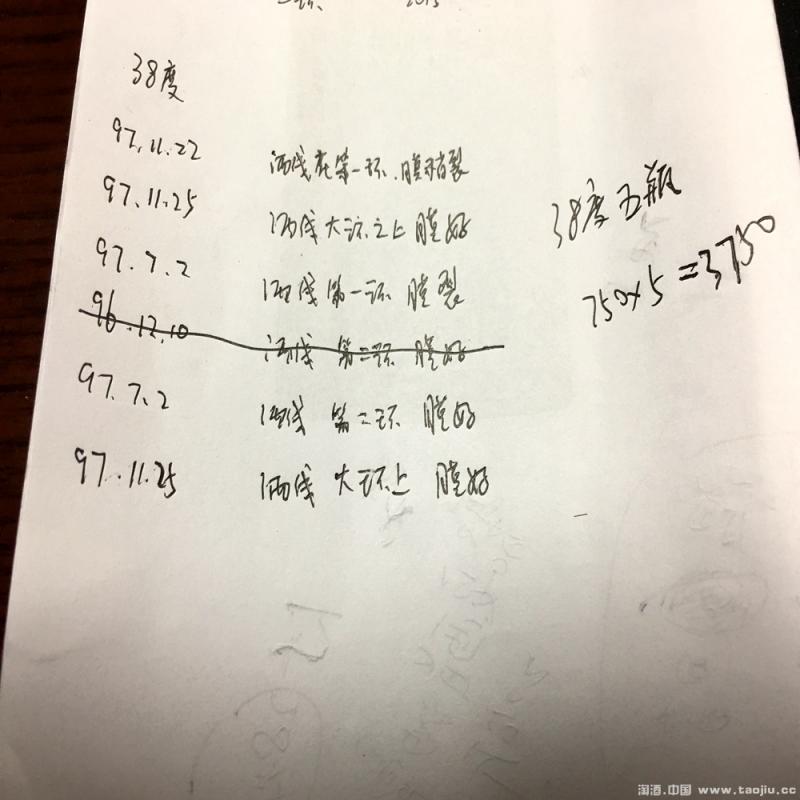 38度
97.11.22 酒线在第一环.膜稍裂
97.11.25 酒线大环之上 膜好
97.7.2 酒线第一环 膜裂
96.12.10 酒线 第二环 膜好
97.7.2 酒线 第二环 膜好
97.11.25 酒线 大环上 膜好
38度五瓶
750×5=3750
淘酒.中国 www.taojiu.cc